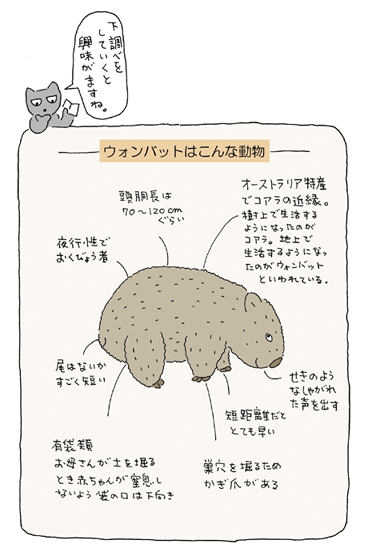 下調べを
していくと
興味がますね。
ウォンバットはこんな動物
頭胴長は
70〜120cm
ぐらい
オーストラリア特産
でコアラの近縁。
樹上で生活する
ようになったのが
コアラ。地上で
生活するようになっ
たのがウォンバット
といわれている。
夜行性で
おくびょう者
尾はないか
すごく短い
せきのよう
なしゃがれ
た声を出す
短距離だと
とても早い
有袋類
お母さんが土を掘る
とき赤ちゃんが窒息し
ないよう袋の口は下向き
巣穴を掘るため
かぎ爪がある